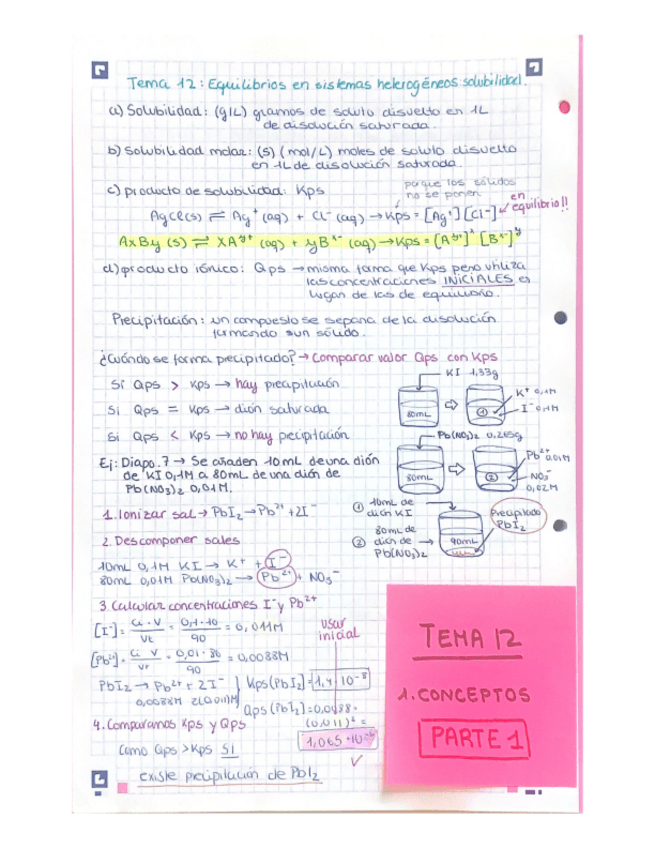 Tema 12: Equilibrios en sistemas heterogéneos: solubilidad.
a) Solubilidad: (g/L) gramos de soluto disuelto en 1L
de disolución saturada.
b) Solubilidad molar: (S) (mol/L) moles de soluto disuelto
en 1L de disolución saturada.
c) producto de solubilidad: Kps
porque los sólidos
no se ponen
AgCl(s) ⇌ Ag⁺ (aq) + Cl⁻ (aq) → Kps = [Ag⁺][Cl⁻]
en
equilibrio!!
AxBy (s) ⇌ XAʸ⁺ (aq) + yBˣ⁻ (aq) → Kps = [Aʸ⁺]ˣ [Bˣ⁻]ʸ
d) producto iónico: Qps → misma forma que Kps pero utiliza
las concentraciones INICIALES en
lugar de las de equilibrio.
Precipitación: un compuesto se separa de la disolución
formando un sólido.
¿Cuándo se forma precipitado? → Comparar valor Qps con Kps
Si Qps > Kps → hay precipitación
Si Qps = Kps → dión saturada
Si Qps < Kps → no hay precipitación
KI 1,33g
80mL
①
K⁺ 0,1M
I⁻ 0,1M
Pb(NO₃)₂ 0,265g
80mL
②
Pb²⁺ 0,01M
NO₃⁻
0,02M
Ej: Diapo. 7 → Se añaden 10mL de una dión
de KI 0,1M a 80mL de una dión de
Pb(NO₃)₂ 0,01M.
1. Ionizar sal → PbI₂ → Pb²⁺ + 2I⁻
① 10mL de
dión KI
② 80mL de
dión de
Pb(NO₃)₂
90mL
Precipitado
PbI₂
2. Descomponer sales
10mL 0,1M KI → K⁺ + I⁻
80mL 0,01M Pb(NO₃)₂ → Pb²⁺ + NO₃⁻
3. Calcular concentraciones I⁻ y Pb²⁺
[I⁻] = Ci · V / Vt = 0,1 · 10 / 90 = 0,011M
[Pb²⁺] = Ci V / Vt = 0,01 · 80 / 90 = 0,0088M
usar
inicial
PbI₂ → Pb²⁺ + 2I⁻
0,0088M 2(0,011)M
Kps(PbI₂) = 1,4 · 10⁻⁸
Qps (PbI₂) = 0,0088 ·
(0,011)² =
1,065 · 10⁻⁶
4. Comparamos Kps y Qps
Como Qps > Kps SI
existe precipitación de PbI₂
TEMA 12
1. CONCEPTOS
PARTE 1